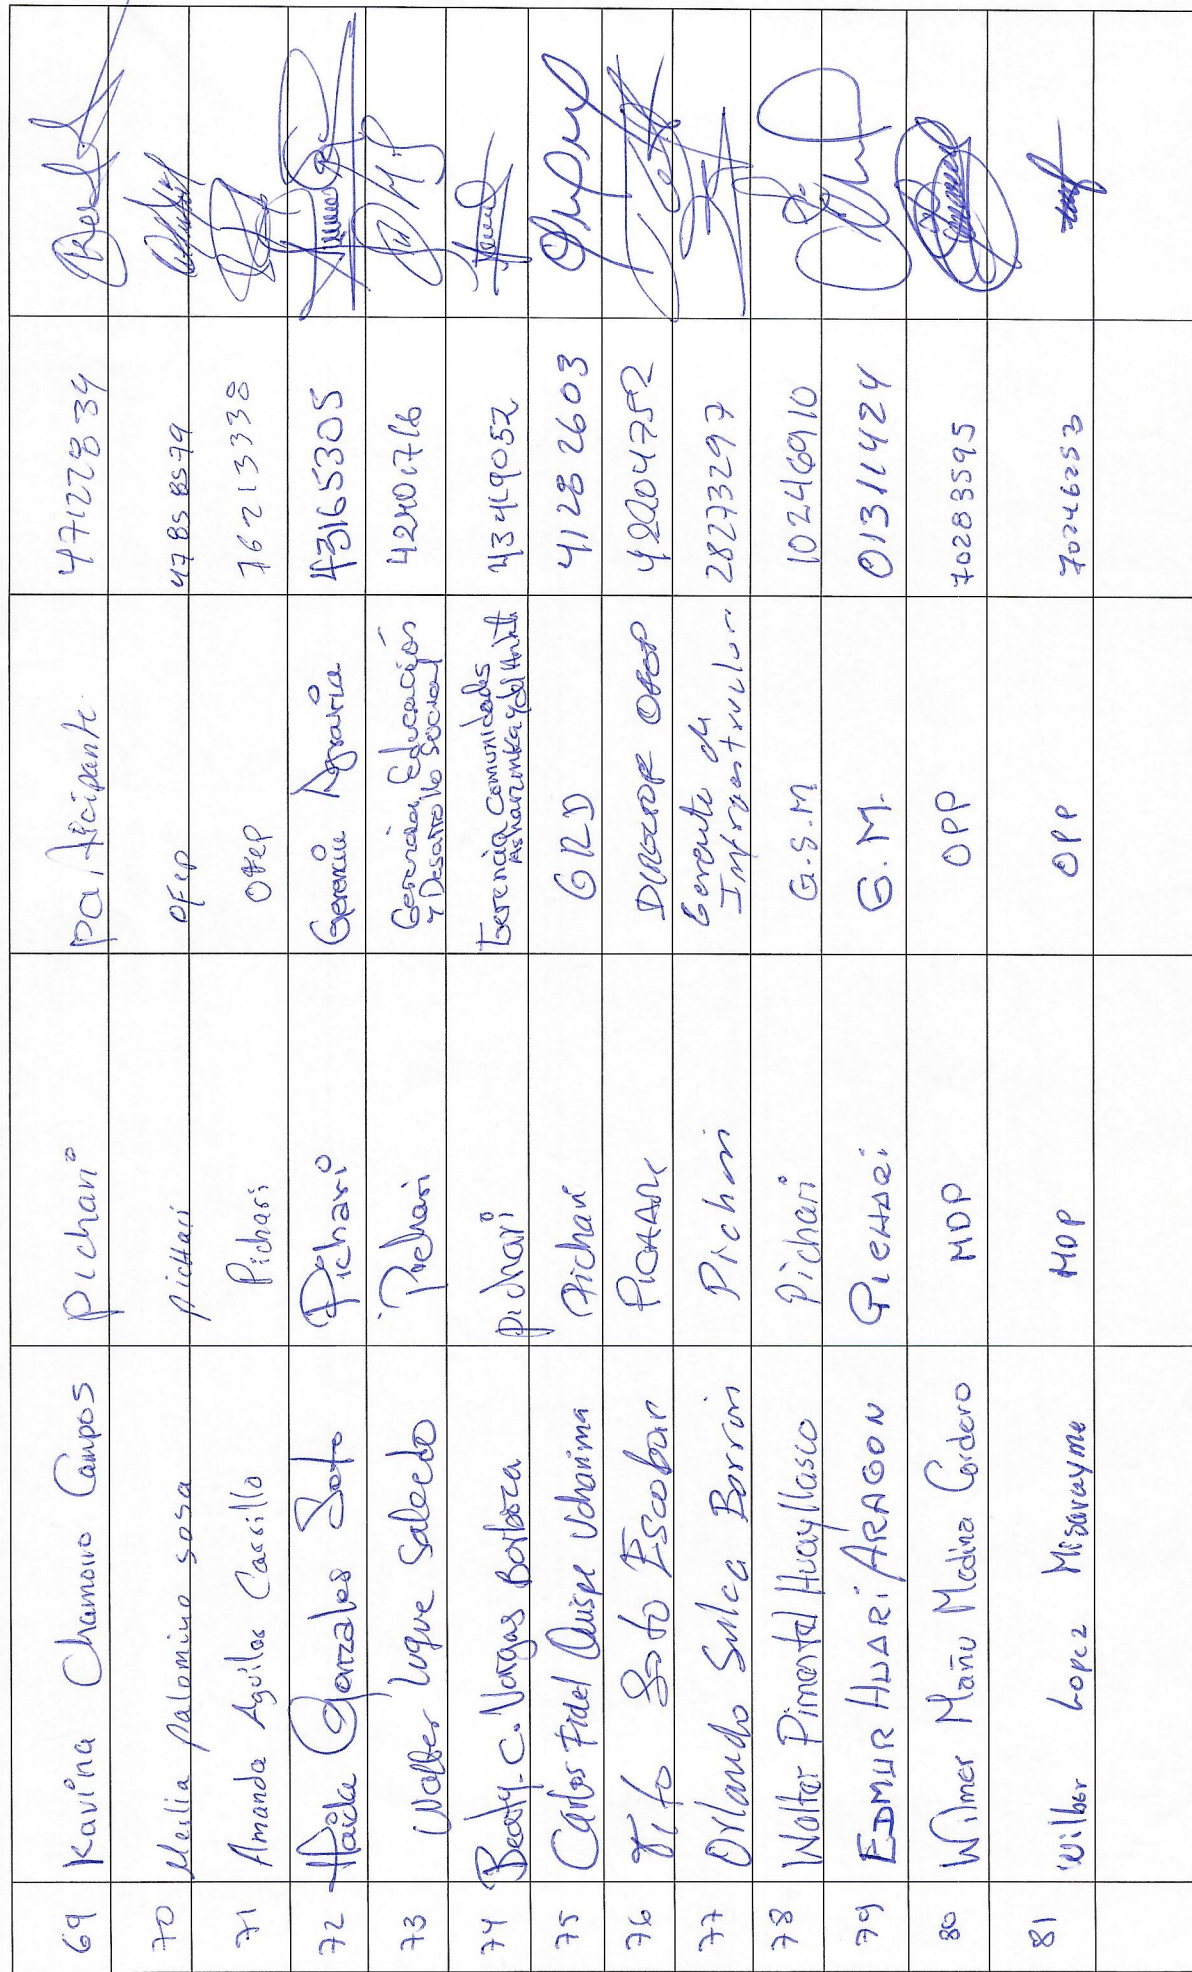 69 Kavina Chamorro Campos Pichari Participante 47122834
70 Merlia Palomino Sosa Pichari OFEP 47858579
71 Amanda Aguilar Cassillo Pichari OFEP 76213338
72 Haide Gonzales Soto Pichari Gerencia Agraria 43165305
73 Walber Luque Salcedo Pichari Gerencia Educación y Desarrollo Social 42401716
74 Beatty. C. Vargas Barboza Pichari Gerencia Comunidades Ashaninka y del 43419052
75 Carlos Fidel Quispe Ucharima Pichari GRD 41282603
76 Tito Soto Escobar PICHARI DIRECTOR OFEP 42204752
77 Orlando Sulca Barrón Pichari Gerente de Infraestructura 28273297
78 Walter Pimentel Huayllasco Pichari G.S.M 10246910
79 EDMUR HUARI ARAGON PICHARI G.M. 01311424
80 Wilmer Mañu Medina Cordero MDP OPP 70283595
81 Wilber Lopez Misaraymo MDP OPP 70246253